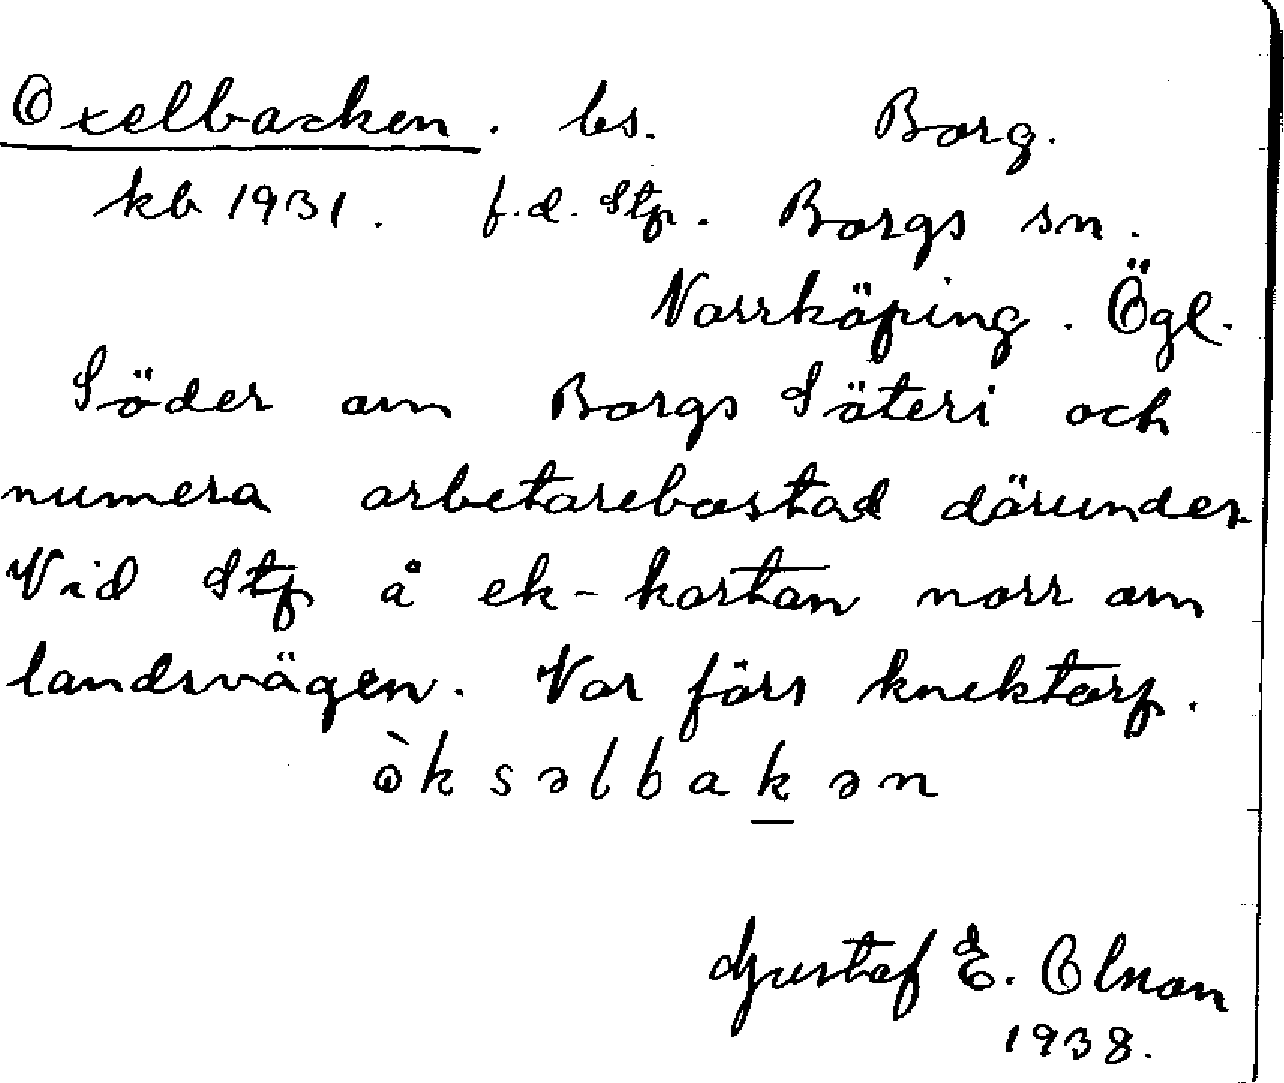 Oxelbacken. bs. Borg.
kb 1931. f.d. Stp. Borgs sn.
Norrköping. Ögl.
Söder om Borgs Säteri och
numera arbetarebostad därunder
Vid Stp å ek-kartan norr om
landsvägen. Var förs knektorp.
ὸksəlbakən
Gustaf E. Olson
1938.